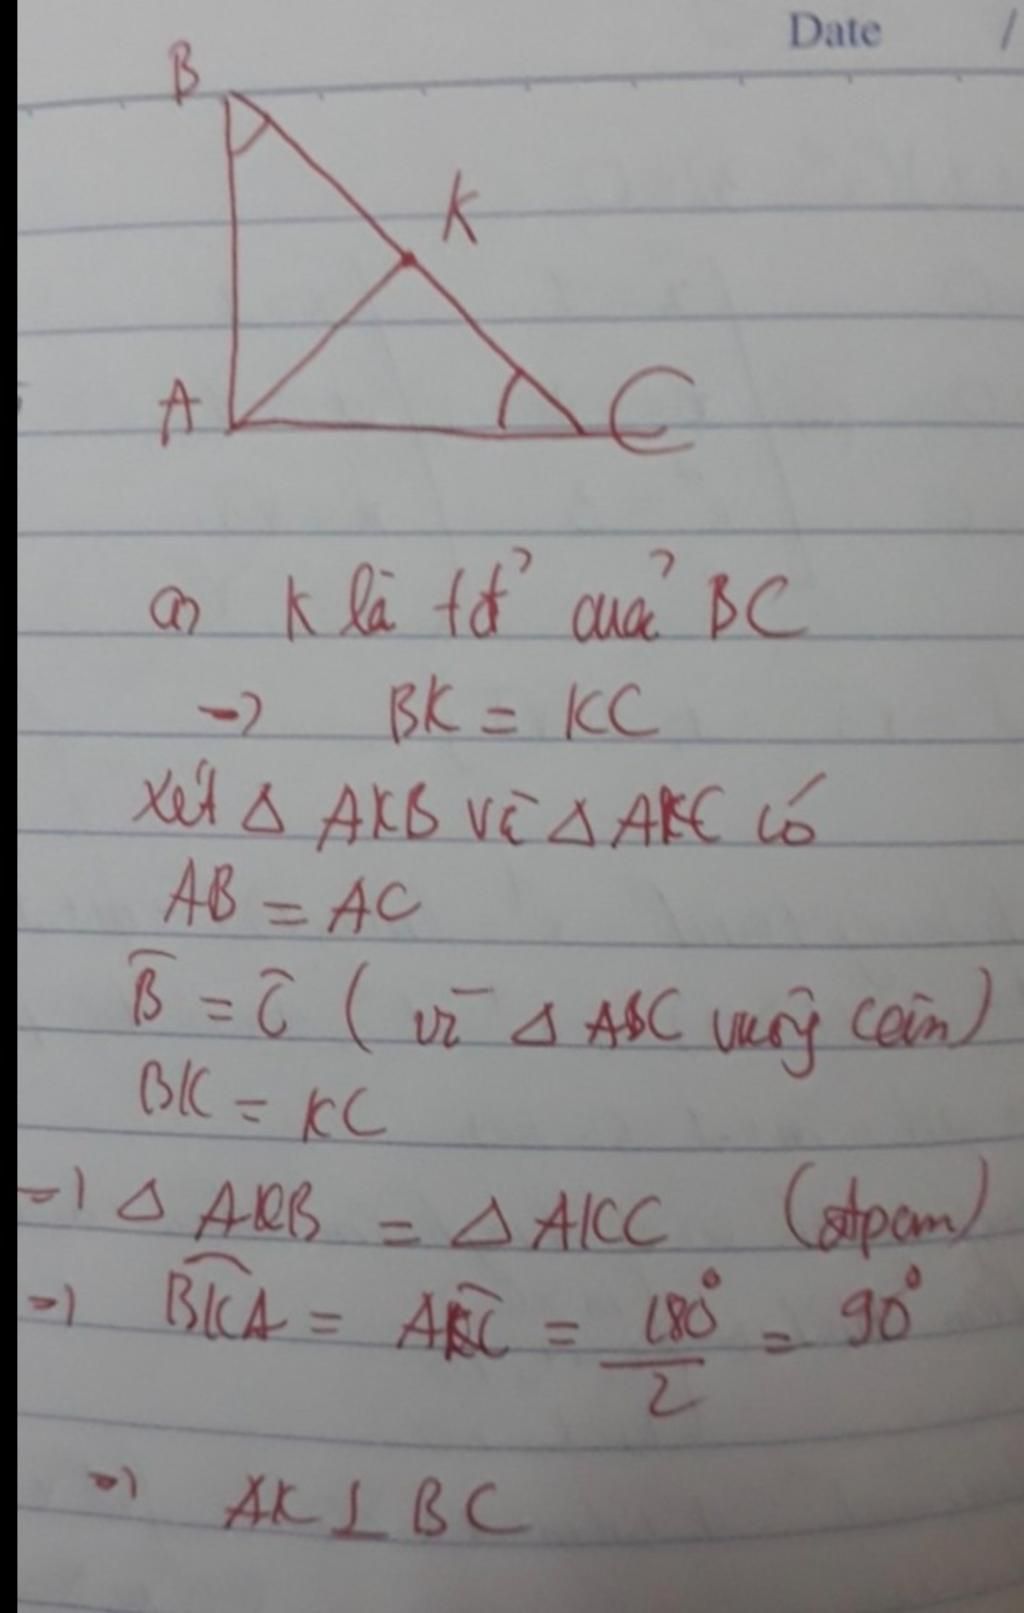 Date /
B
K
A
C
a) K là tđ' của BC
=> BK = KC
Xét Δ AKB và Δ AKC có
AB = AC
B̂ = Ĉ ( vì Δ ABC vuông cân)
BK = KC
=> Δ AKB = Δ AKC (đpcm)
=> B̂KA = AK̂C = 180°/2 = 90°
=> AK ⊥ BC